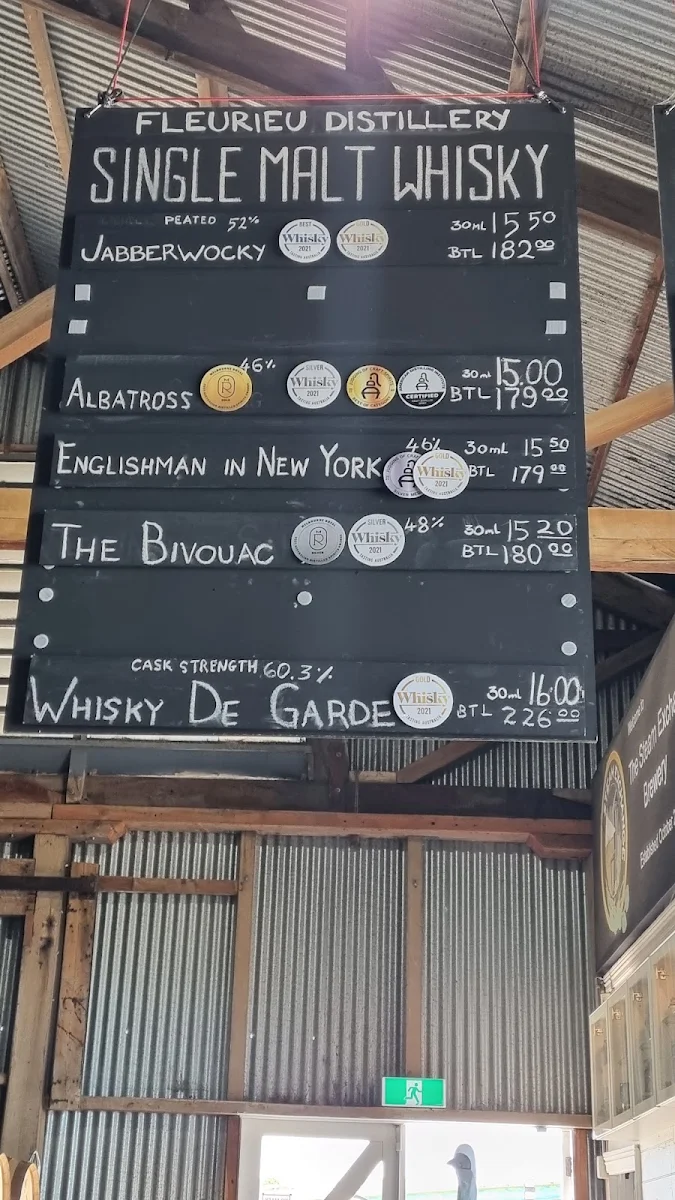 FLEURIEU DISTILLERY
SINGLE MALT WHISKY
PEATED 52%
JABBERWOCKY
BEST Whisky 2021
GOLD Whisky 2021
30ml 15 50
BTL 182 00
46%
ALBATROSS
SILVER Whisky 2021
CERTIFIED
30ml 15.00
BTL 179 00
46%
ENGLISHMAN IN NEW YORK
GOLD Whisky 2021
30ml 15 50
BTL 179 00
48%
THE BIVOUAC
SILVER Whisky 2021
30ml 15 20
BTL 180 00
CASK STRENGTH 60.3%
WHISKY DE GARDE
GOLD Whisky 2021
30ml 16.00
BTL 226 00
Welcome to
The Steam Exch
Brewery
Established October 2